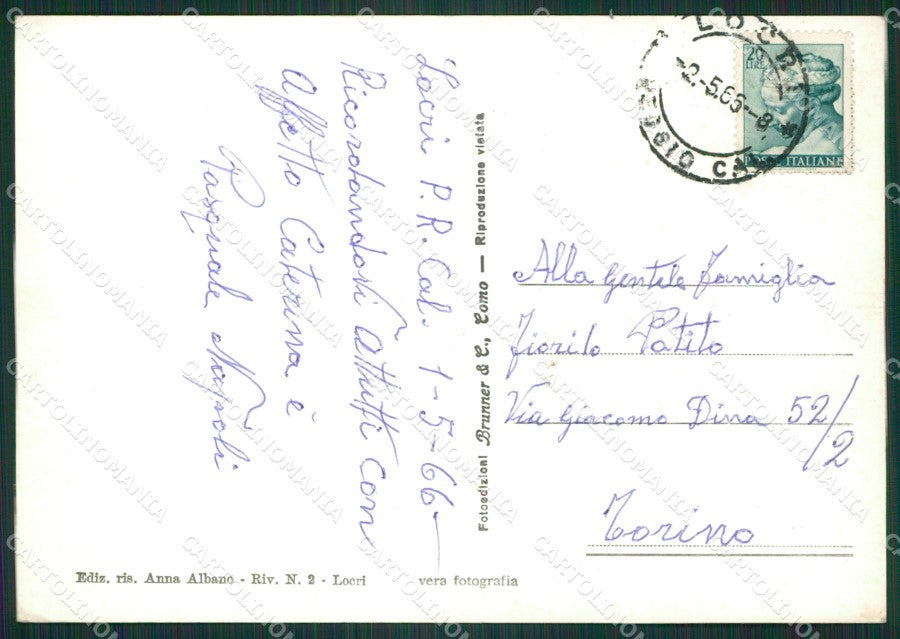 Locri P.R. Cal. 1-5-66
Ricordandosi Attutti con
Affetto Caterina è
Pasquale Napoli
Fotoedizioni Brunner & C., Como — Riproduzione vietata
LOCRI
REGGIO CAL
-2.-5.66-8
20
LIRE
POSTE ITALIANE
Alla Gentile Famiglia
Fiorilo Patito
Via Giacomo Dina 52/2
Torino
Ediz. ris. Anna Albano - Riv. N. 2 - Locri
vera fotografia
CARTOLINOMANIA